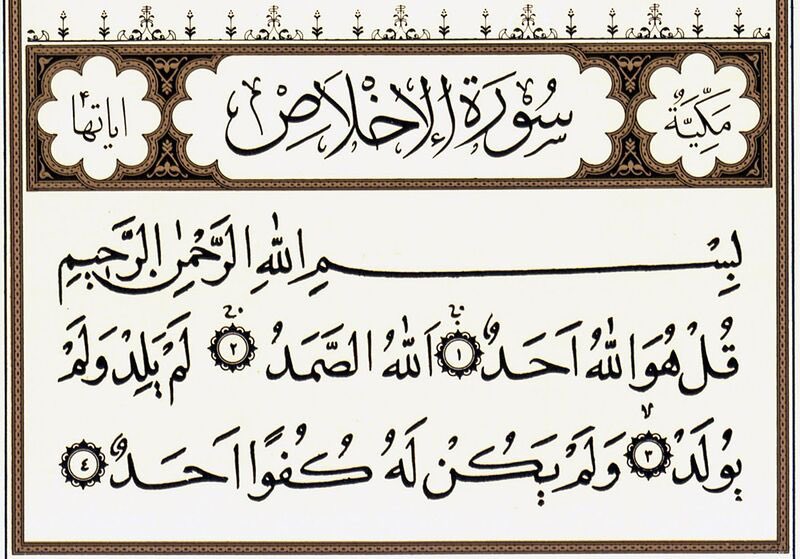 مَكِّيَّةٌ سُورَةُ الإِخْلَاصِ اياتها ٤
بِسْمِ اللّٰهِ الرَّحْمٰنِ الرَّحِيمِ
قُلْ هُوَ اللّٰهُ اَحَدٌ ۚ ١ اَللّٰهُ الصَّمَدُ ۚ ٢ لَمْ يَلِدْ وَلَمْ
يُولَدْ ۙ ٣ وَلَمْ يَكُنْ لَهُ كُفُوًا اَحَدٌ ٤